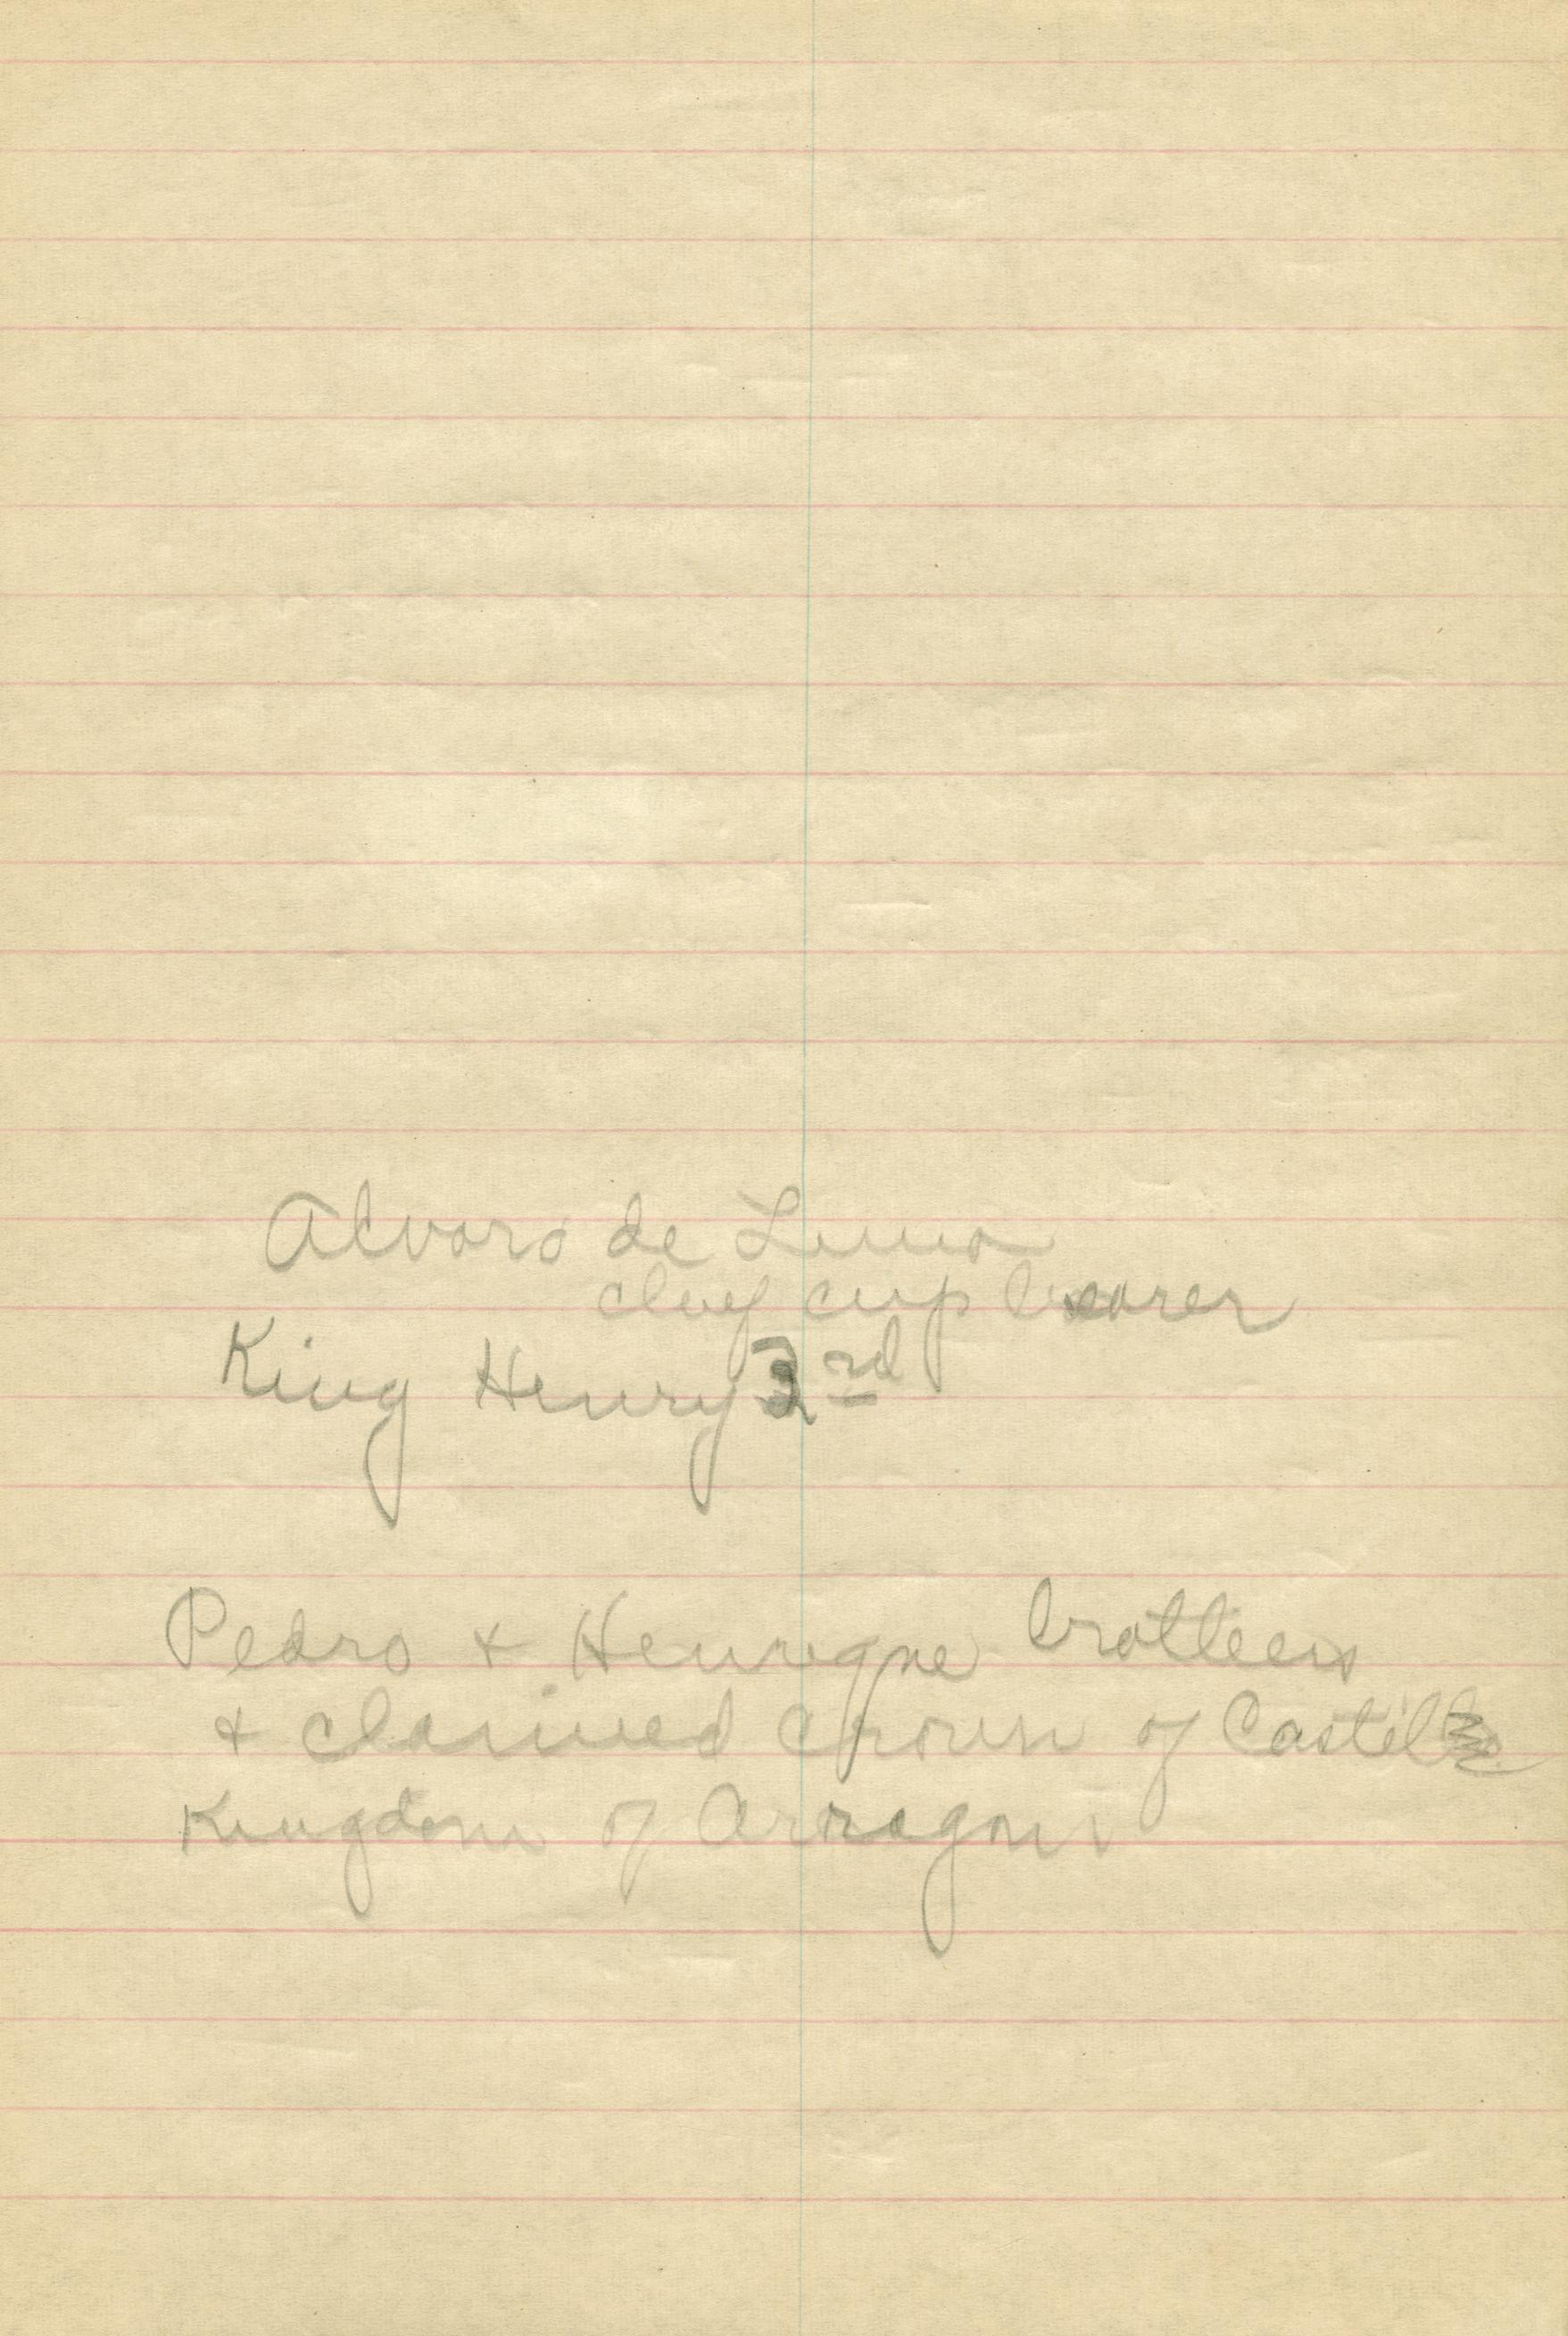 Alvaro de Luna
chief cup bearer
King Henry 3rd
Pedro & Henrique brothers
& claimed crown of Castile
Kingdom of Arragon